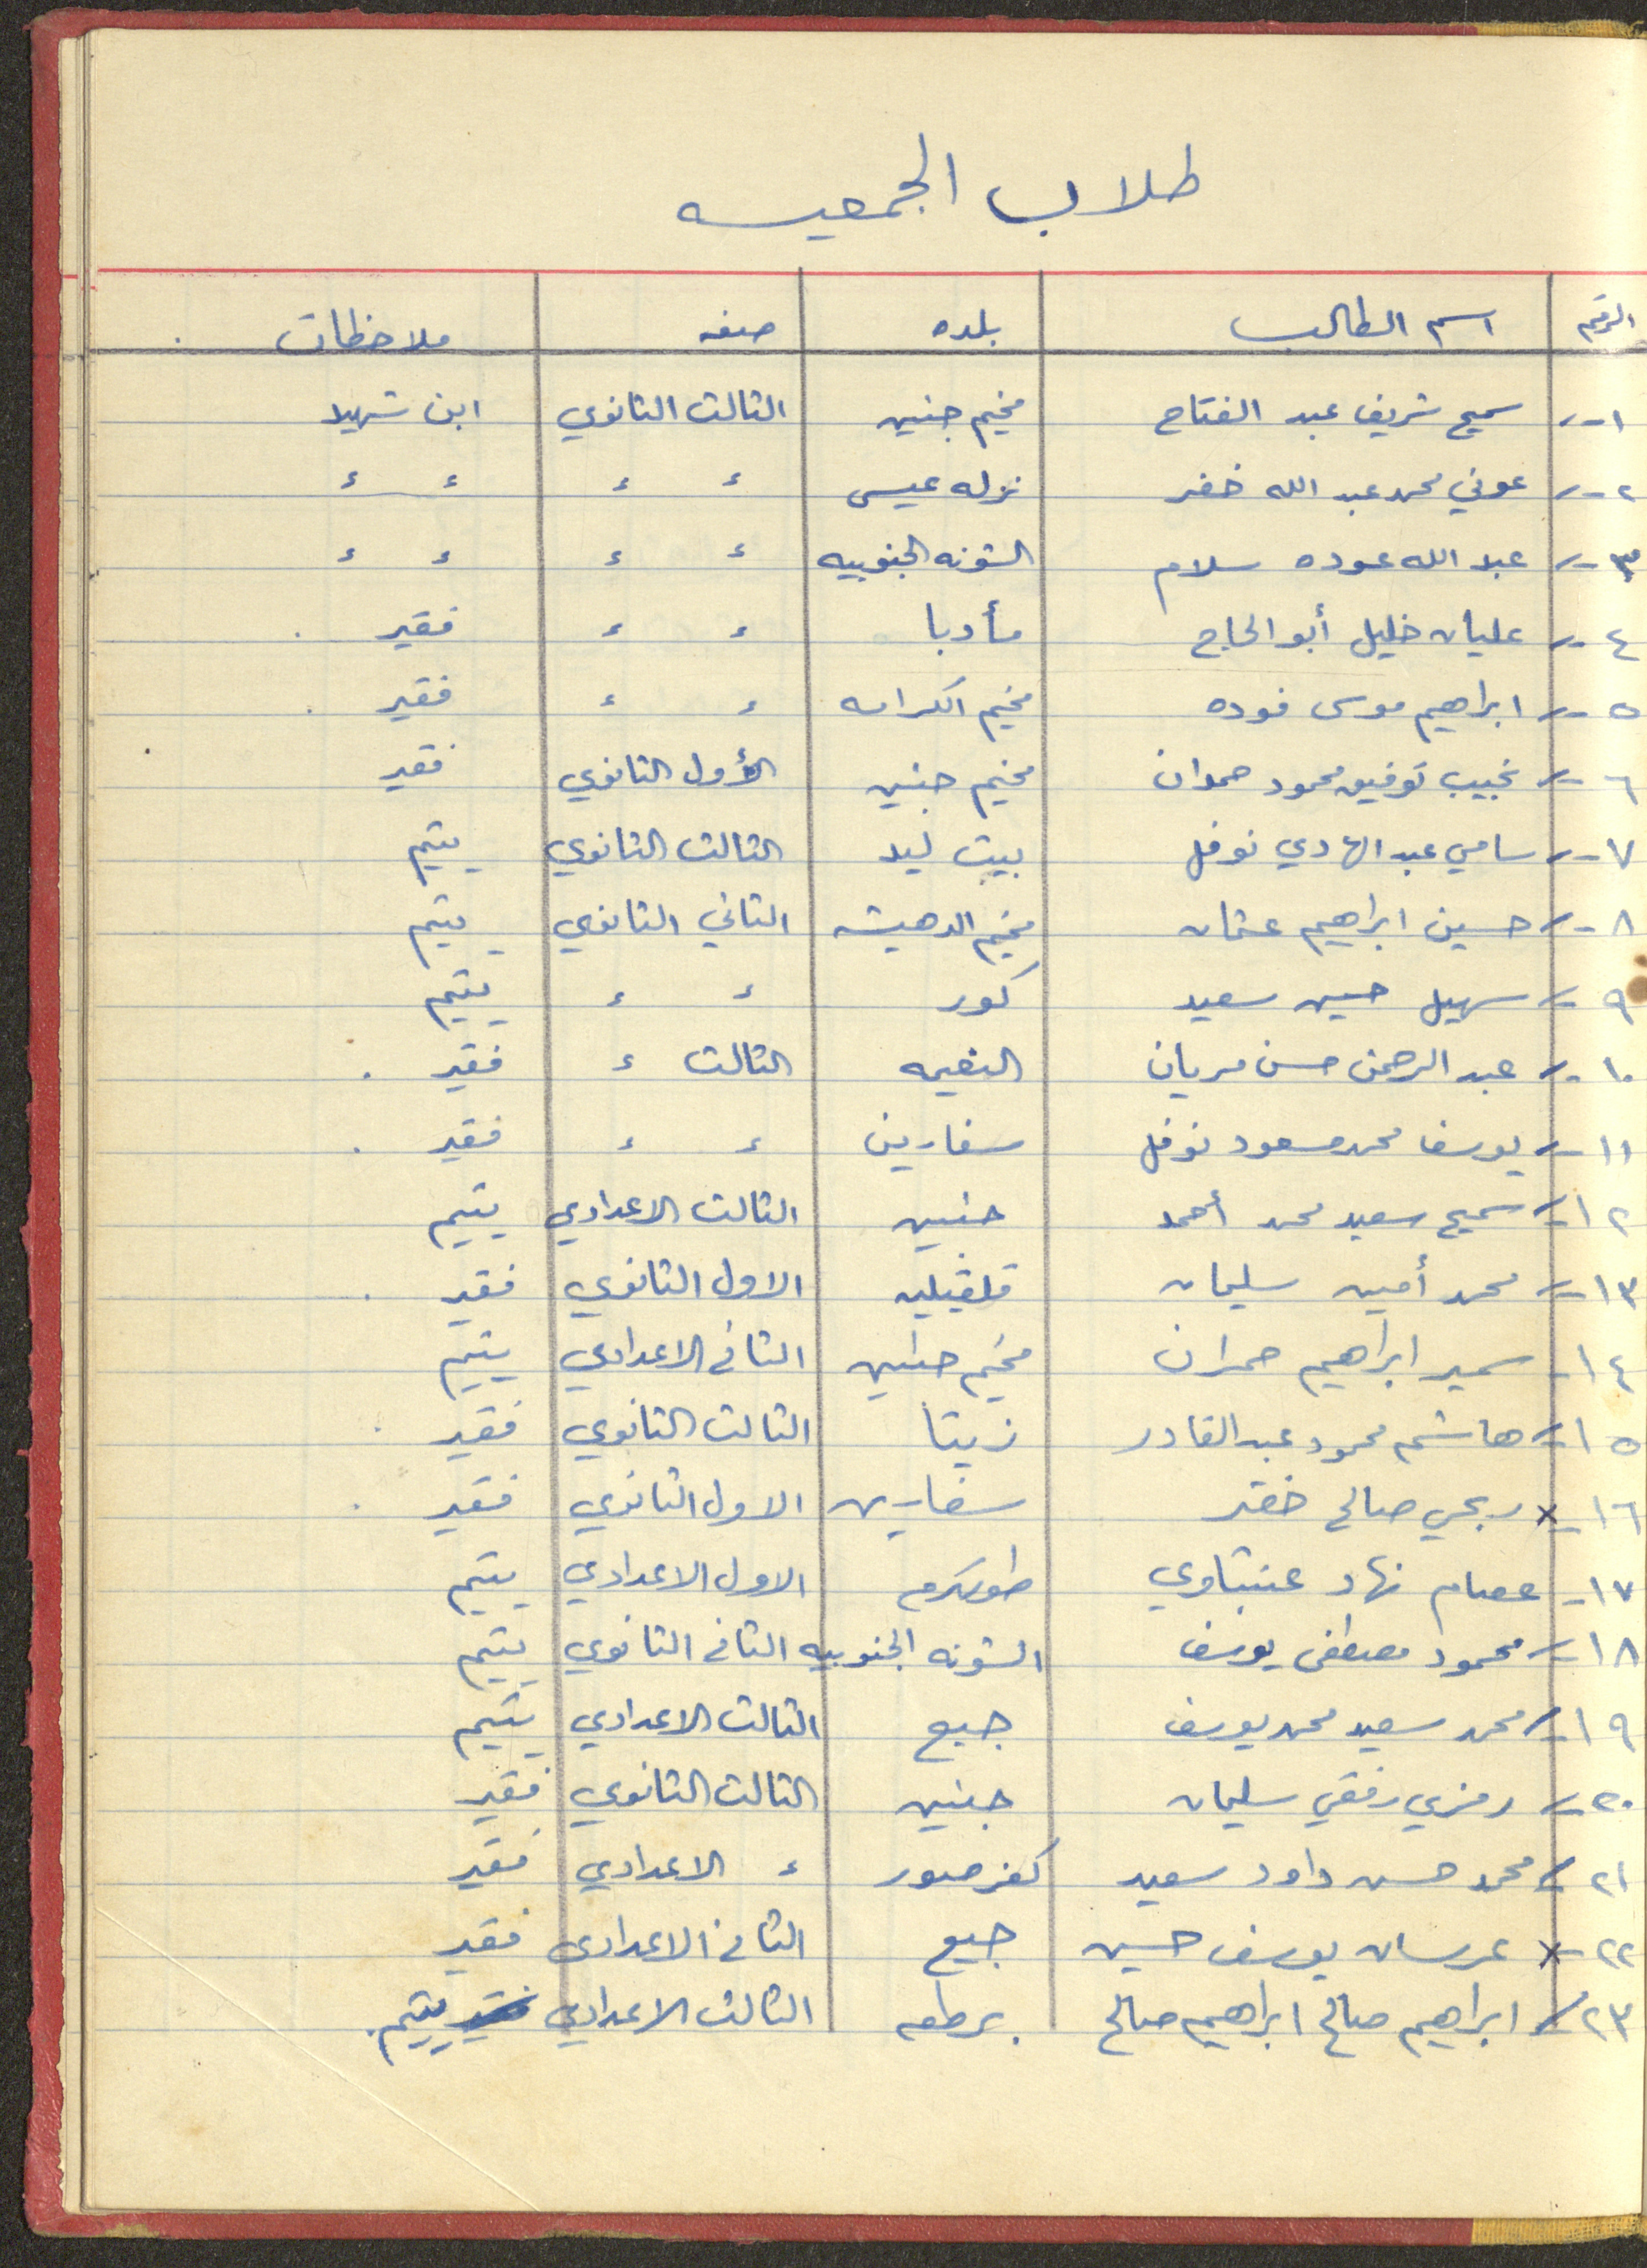 طلاب الجمعيه
الرقم اسم الطالب بلده صفه ملاحظات
١- سميح شريف عبد الفتاح مخيم جنين الثالث الثانوي ابن شهيد
٢- عوني محمد عبد الله خضر نزله عيسى ء ء ء ء
٣- عبد الله عوده سلام الشونه الجنوبيه ء ء ء ء
٤- عليان خليل أبو الحاج مأدبا ء ء فقير
٥- ابراهيم موسى فوده مخيم الكرامه ء ء فقير
٦- نجيب توفيق محمود حمدان مخيم جنين الأول الثانوي فقير
٧- سامي عبد الهادي نوفل بيت ليد الثالث الثانوي يتيم
٨- حسين ابراهيم عثمان مخيم الدهيشه الثاني الثانوي يتيم
٩- سهيل حسين سعيد كور ء ء يتيم
١٠- عبد الرحمن حسن مريان النعيمه الثالث ء فقير
١١- يوسف محمد مسعود نوفل سفارين ء ء فقير
١٢- سميح سعيد محمد أحمد جنين الثالث الاعدادي يتيم
١٣- محمد أمين سليمان قلقيليه الاول الثانوي فقير
١٤- سمير ابراهيم حمدان مخيم جنين الثاني الاعدادي يتيم
١٥- هاشم محمود عبد القادر زيتا الثالث الثانوي فقير
١٦- x ربحي صالح خضر سفارين الاول الثانوي فقير
١٧- عصام نهاد عنبتاوي طولكرم الاول الاعدادي يتيم
١٨- محمود مصطفى يوسف الشونه الجنوبيه الثاني الثانوي يتيم
١٩- محمد سعيد محمد يوسف جبع الثالث الاعدادي يتيم
٢٠- رمزي رفقي سليمان جنين الثالث الثانوي فقير
٢١- محمد حسن داود سعيد كفر صور ء الاعدادي فقير
٢٢- x عرسان يوسف حسين جبع الثاني الاعدادي فقير
٢٣- ابراهيم صالح ابراهيم صالح برطعه الثالث الاعدادي فقير يتيم.